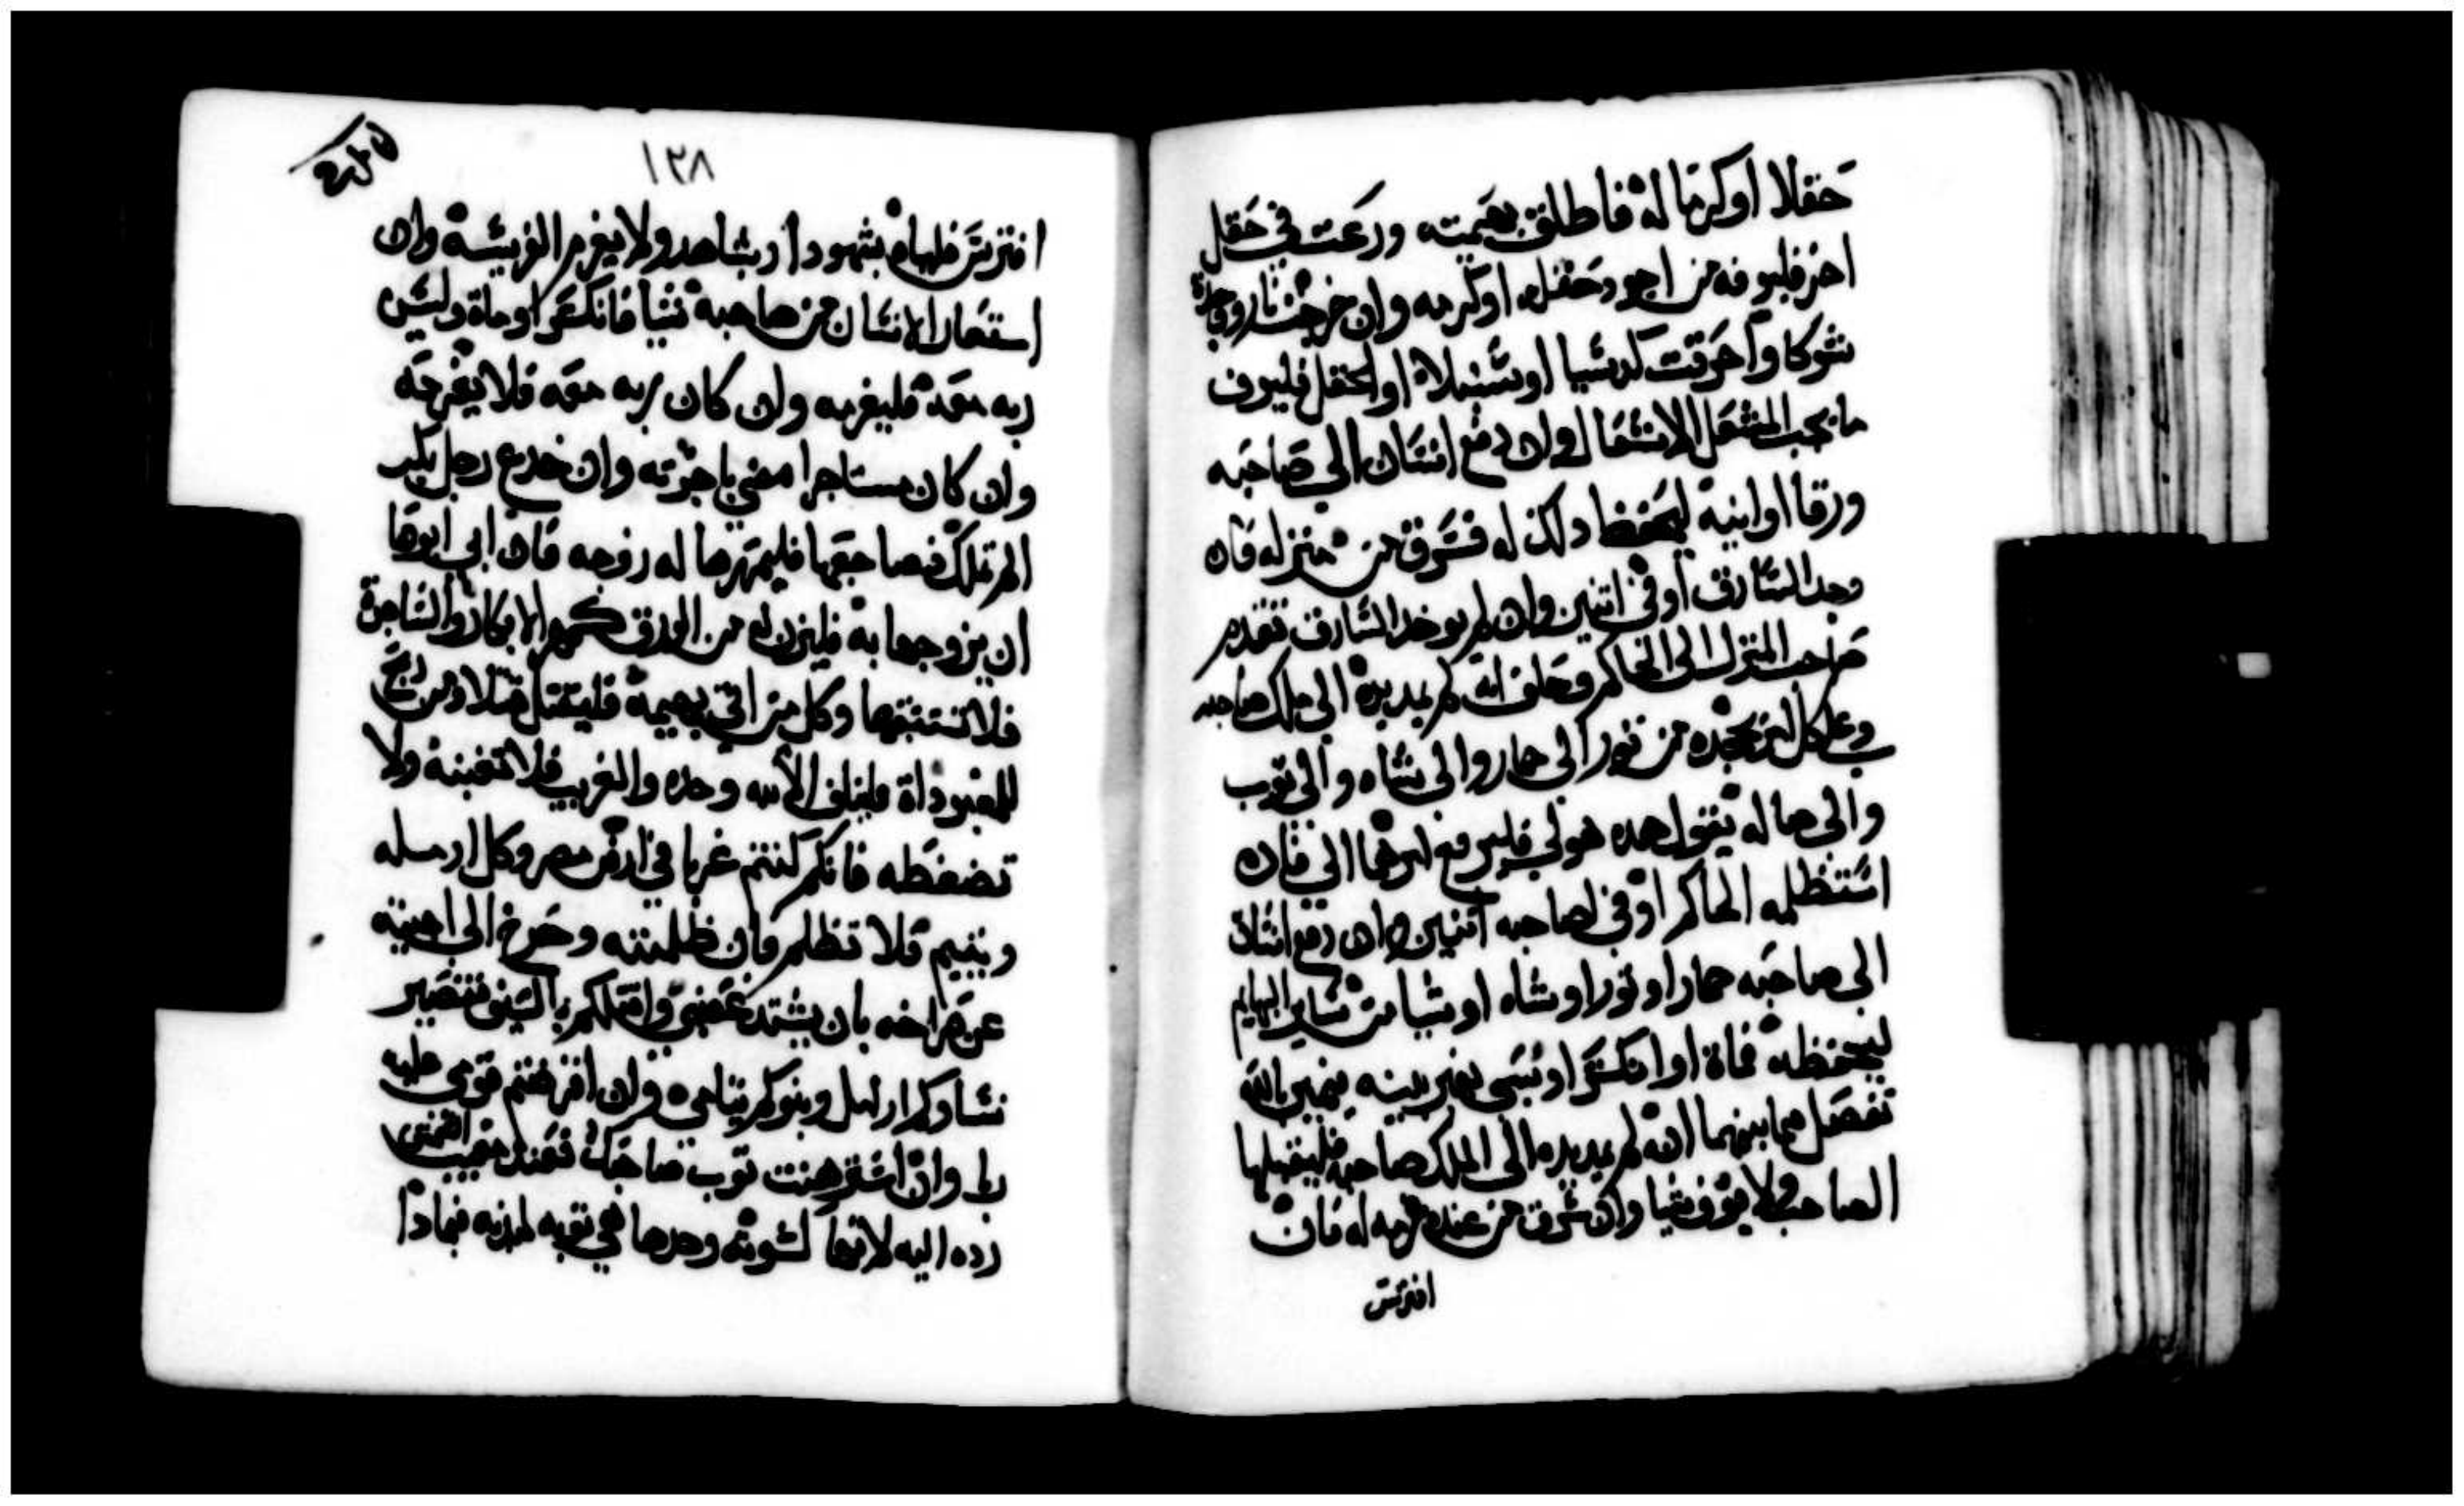 حقلا او كرما له فاطلق بهيمته ورعت في حقل
اخر فليوفه من اجود حقله او كرمه وان خرجت نار وجدة
شوكا واحرقت كدشيا او سنبلاة او الحقل فليوف
ما يجب المشعل الاشعال وان دفع انسان الي صاحبه
ورقا او انية ليحفظ دلك له فسرق من منزله فان
وجد السارق اوفي اتنين وان لم يوخد السارق تقدم
صاحب المنزل الى الحاكم وحلف انه لم يمد يده الي ملك صاحبه
وعلى كل من تور الى حمار والى شاه والى توب
والى ضاله يقول هده هو لي فليرفع امرهما الي فان
استظلمه الحاكم اوفي لصاحبه اتنين وان دفع انسان
الى صاحبه حمارا او تورا او شاه او شيا من ساير البهايم
ليحفظه فماة او انكسر او سبى بغير بينه يمين بالله
تفصل فيما بينهما انه لم يمد يده الى الملك صاحبه فليقبلها
الصاحب ولا يوفي شيا وان سرق من عنده غرمه له فان
افترس
١٢٨
افترس فلياة بشهود او بشاهد ولا يغرم الفريسة وان
استعار الانسان من صاحبه شيا فانكسر او ماة وليس
ربه معه فليغرمه وان كان ربه معه فلا يغرمه
وان كان مستاجرا مضي باجرته وان خدع رجل بكر
لم تملك فضاجعها فليمهرها له زوجه فان ابى ابوها
ان يزوجها به فليزن له من الورق كمهر الابكار والساحرة
فلا تستبقها وكل من اتي بهيمة فليقتل قتلا ومن دبح
للمعبوداة فليتلف الا لله وحده والغريب فلا تغبنه ولا
تضغطه فانكم كنتم غربا في ارض مصر وكل ارمله
ويتيم فلا تظلم فان ظلمته وصرخ الى اجبته
عن صراخه بان يشتد غضبي واقتلكم بالسيف فتصير
نساوكم ارامل وبنوكم يتامى وان اقرضتم قومي عليه
ربا وان استرهنت توب صاحبك فعند مغيب الشمس
رده اليه لانها كسوته وحدها هي توبه لبدنه فبمادا